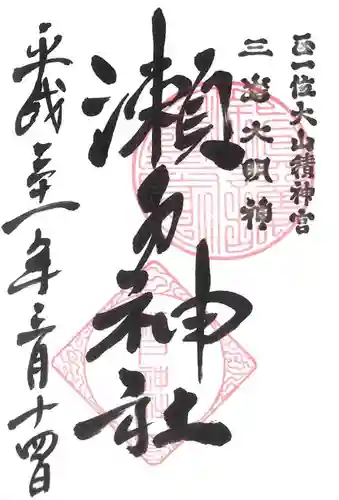 正一位大山積神宮
三島大明神
瀬戸神社
平成三十一年三月十四日